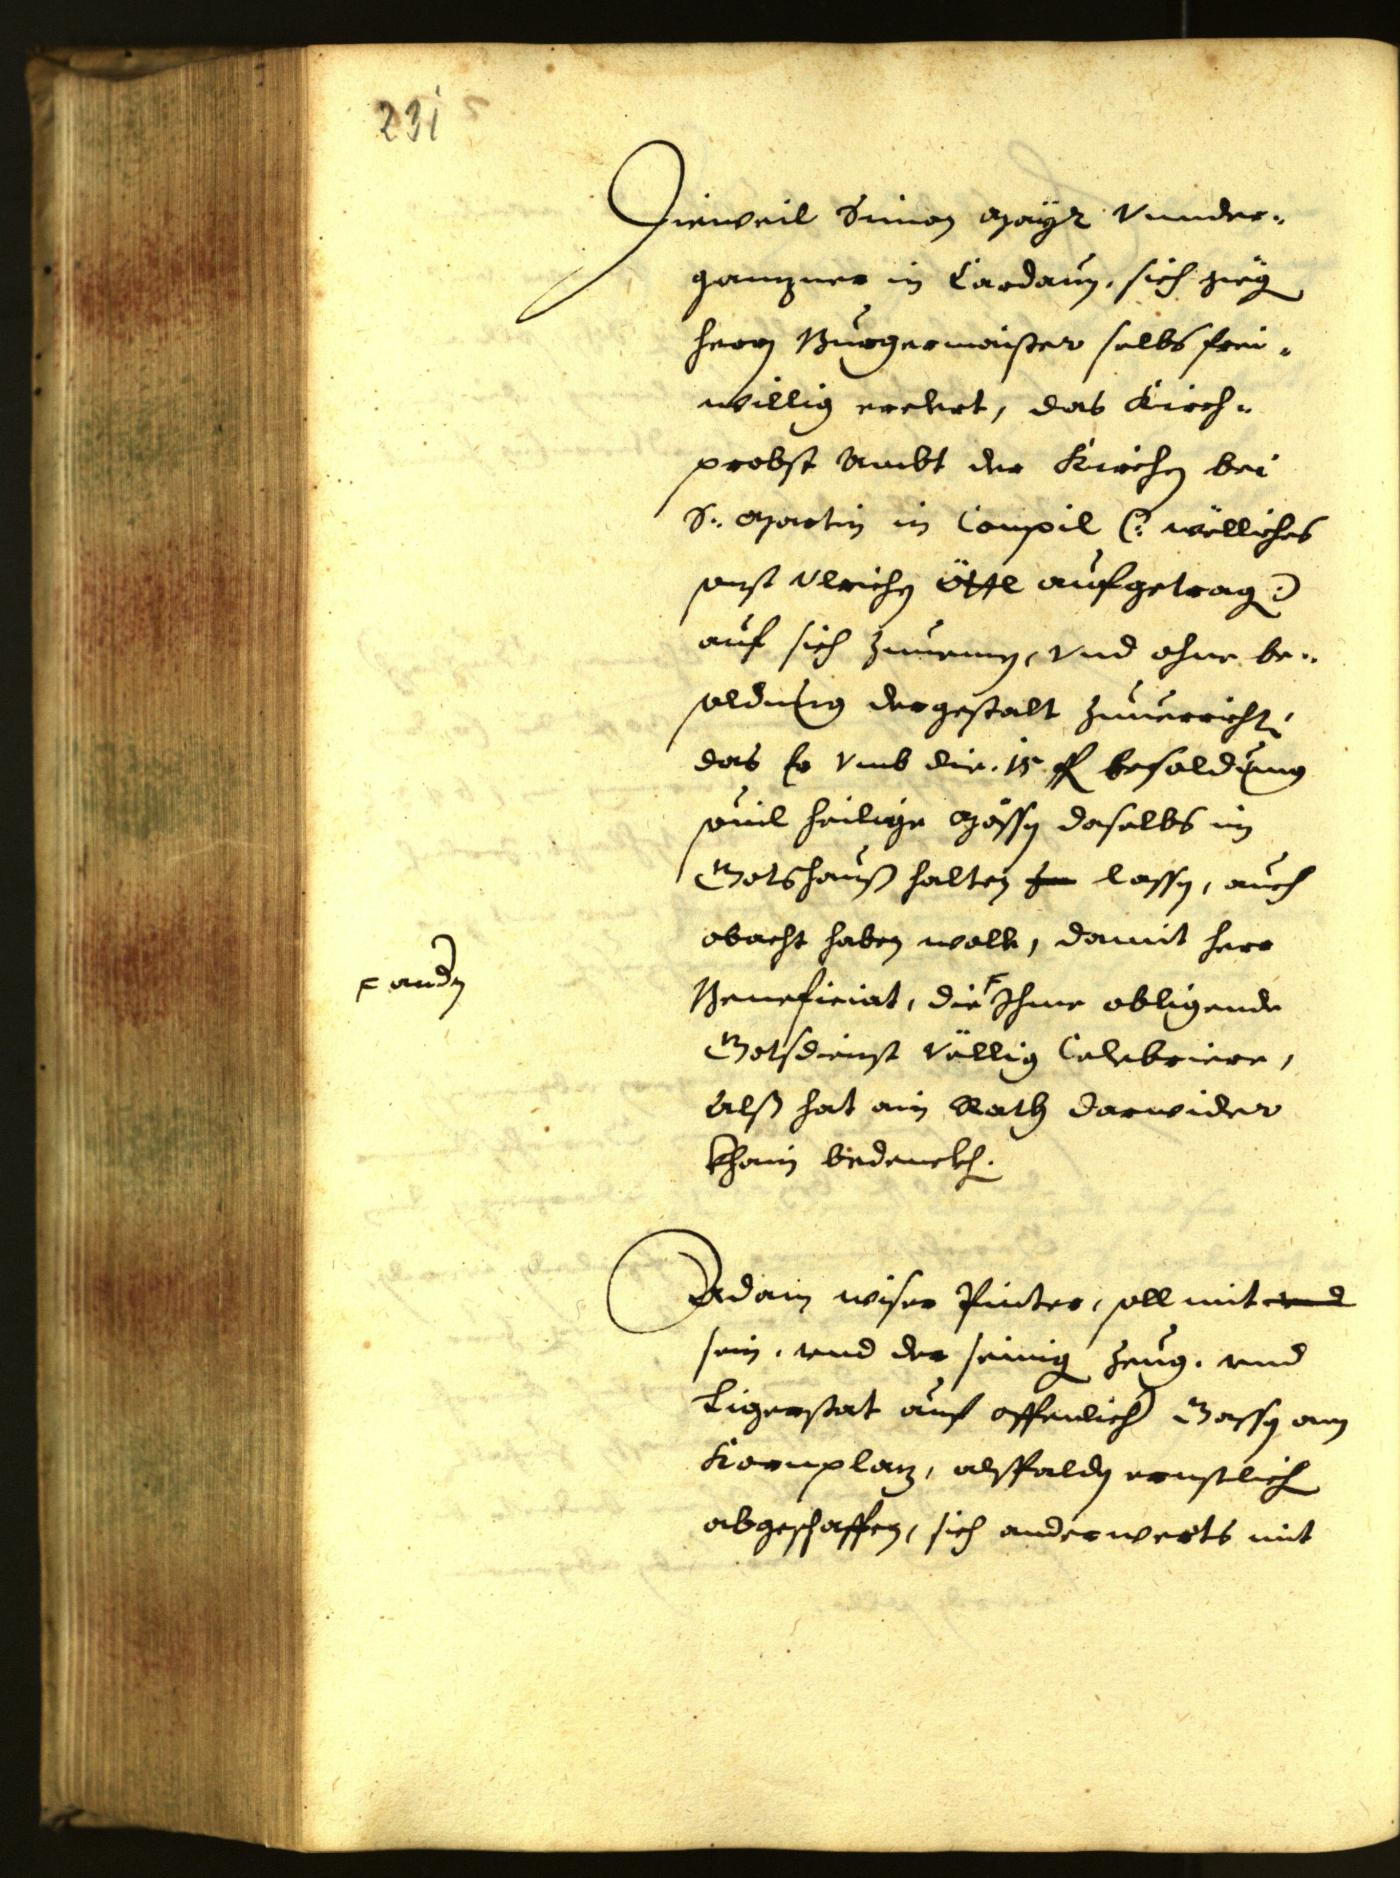 231
Dieweil Simon Mayr Vnnder-
ganzner in Cardaun, sich gegen
herrn Burgermaister selbs frei-
willig erclert, das Kirch-
probst Ambt der Kirchen bei
S: Martin in Campil (: wölliches
sonst Ulrichen Öttl aufgetragen :)
auf sich zunemen, vnd ohne be-
soldung dergestalt zuuerrichten,
das Er vmb die 15 fl besoldung
souil heilige Mössen daselbs im
Gotshauß halten zu lassen, auch
obacht haben wolle, damit herr
Beneficiat, die Ihme obligende
andern
Gotsdienst völlig Celebriere,
Alß hat ain Rath darwider
khain bedenckhen.
Adam wiser Pinter, soll mit und
sein, vnd der seinig zeug, vnd
Ligerstat auf offenlicher Gassen am
Kornplatz, alßbalden ernstlich
abgeschaffen, sich anderwerts mit